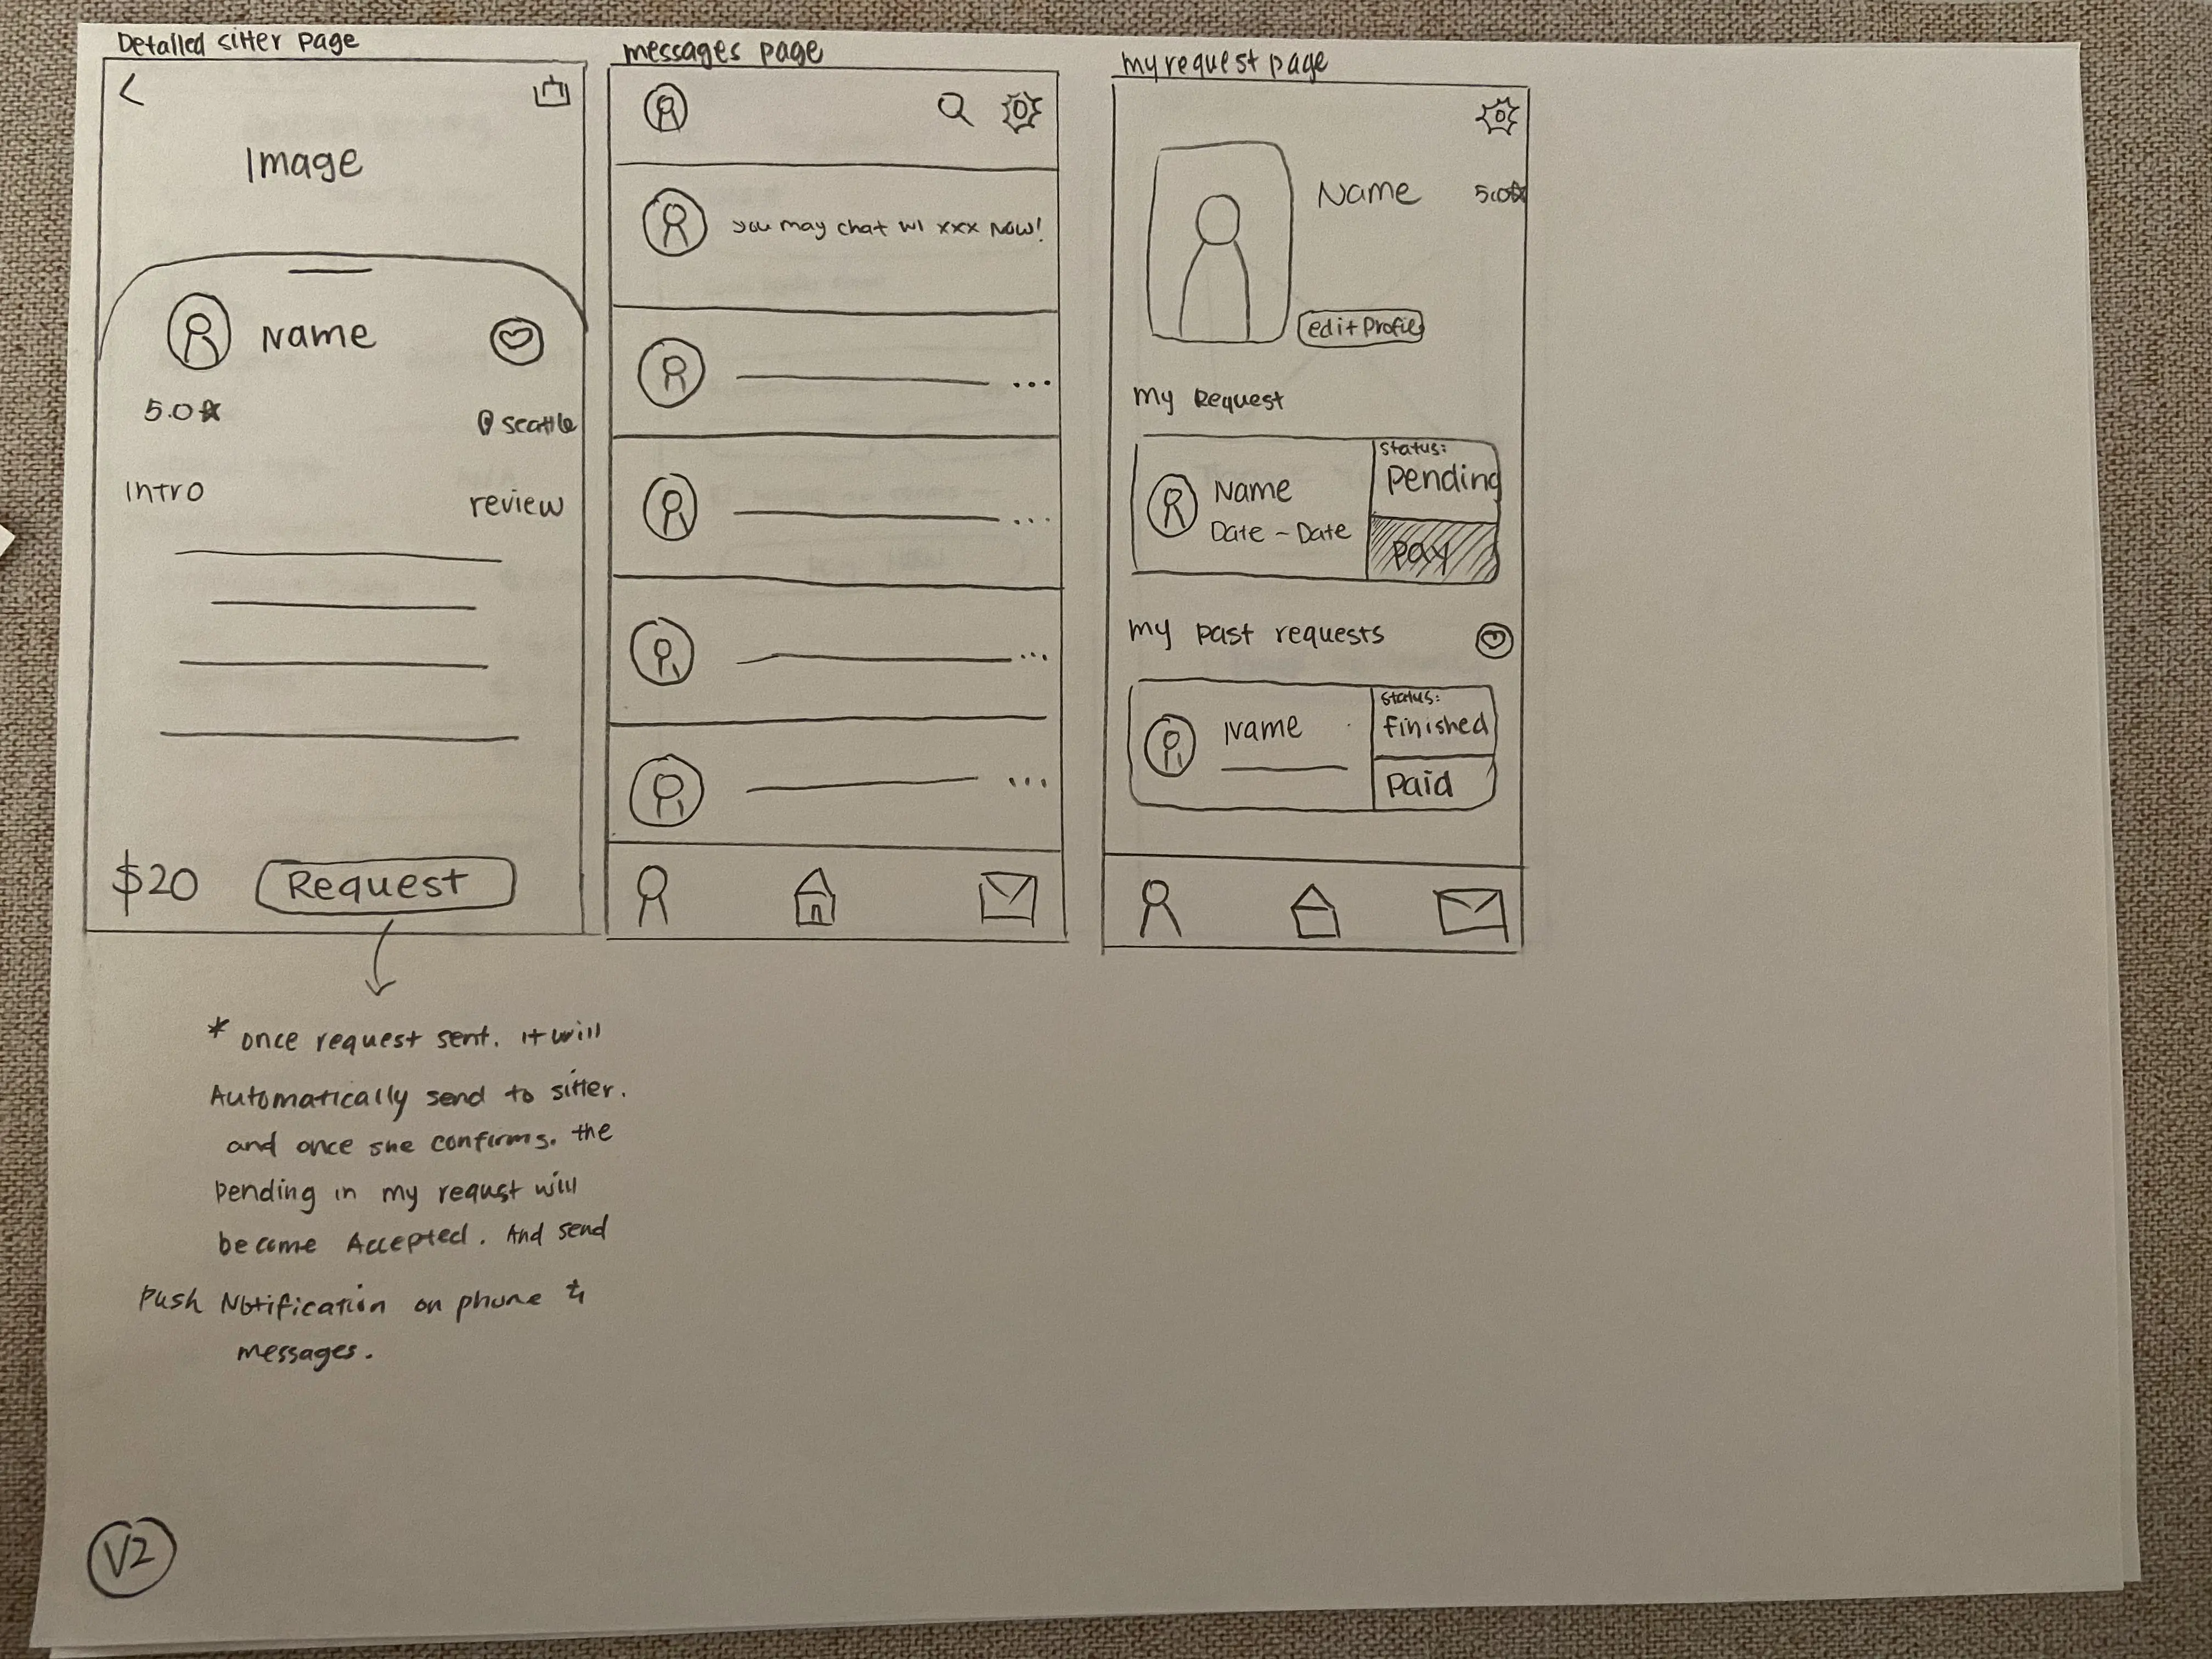 Detailed sitter page
Image
Name
5.0
seattle
Intro
review
$20
Request
* once request sent. it will
Automatically send to sitter.
and once she confirms. the
Pending in my requst will
become Accepted. And send
Push Notification on phone &
messages.
V2
messages page
you may chat w/ xxx now!
...
...
...
...
my request page
Name
5.0
edit Profile
my Request
Name
Date - Date
Status:
Pending
pay
my past requests
Name
Status:
finished
Paid